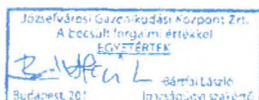 Józsefvárosi Gazdálkodási Központ Zrt.
A becsült forgalmi értékkel
EGYETÉRTEK
Bártfai László
Budapest, 201
ingatlanügyi szakértő